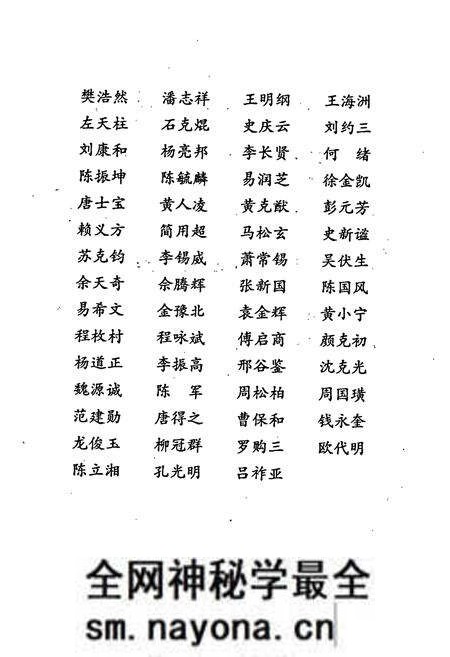 樊浩然 潘志祥 王明纲 王海洲
左天柱 石克焜 史庆云 刘约三
刘康和 杨亮邦 李长贤 何 绪
陈振坤 陈毓麟 易润芝 徐金凯
唐士宝 黄人凌 黄克猷 彭元芳
赖义方 简用超 马松玄 史新谧
苏克钧 李锡威 萧常锡 吴伏生
余天奇 佘腾辉 张新国 陈国风
易希文 金豫北 袁金辉 黄小宁
程枚村 程咏斌 傅启商 颜克初
杨道正 李振高 邢谷鉴 沈克光
魏源诚 陈 军 周松柏 周国璜
范建勋 唐得之 曹保和 钱永奎
龙俊玉 柳冠群 罗购三 欧代明
陈立湘 孔光明 吕祚亚
全网神秘学最全
sm.nayona.cn